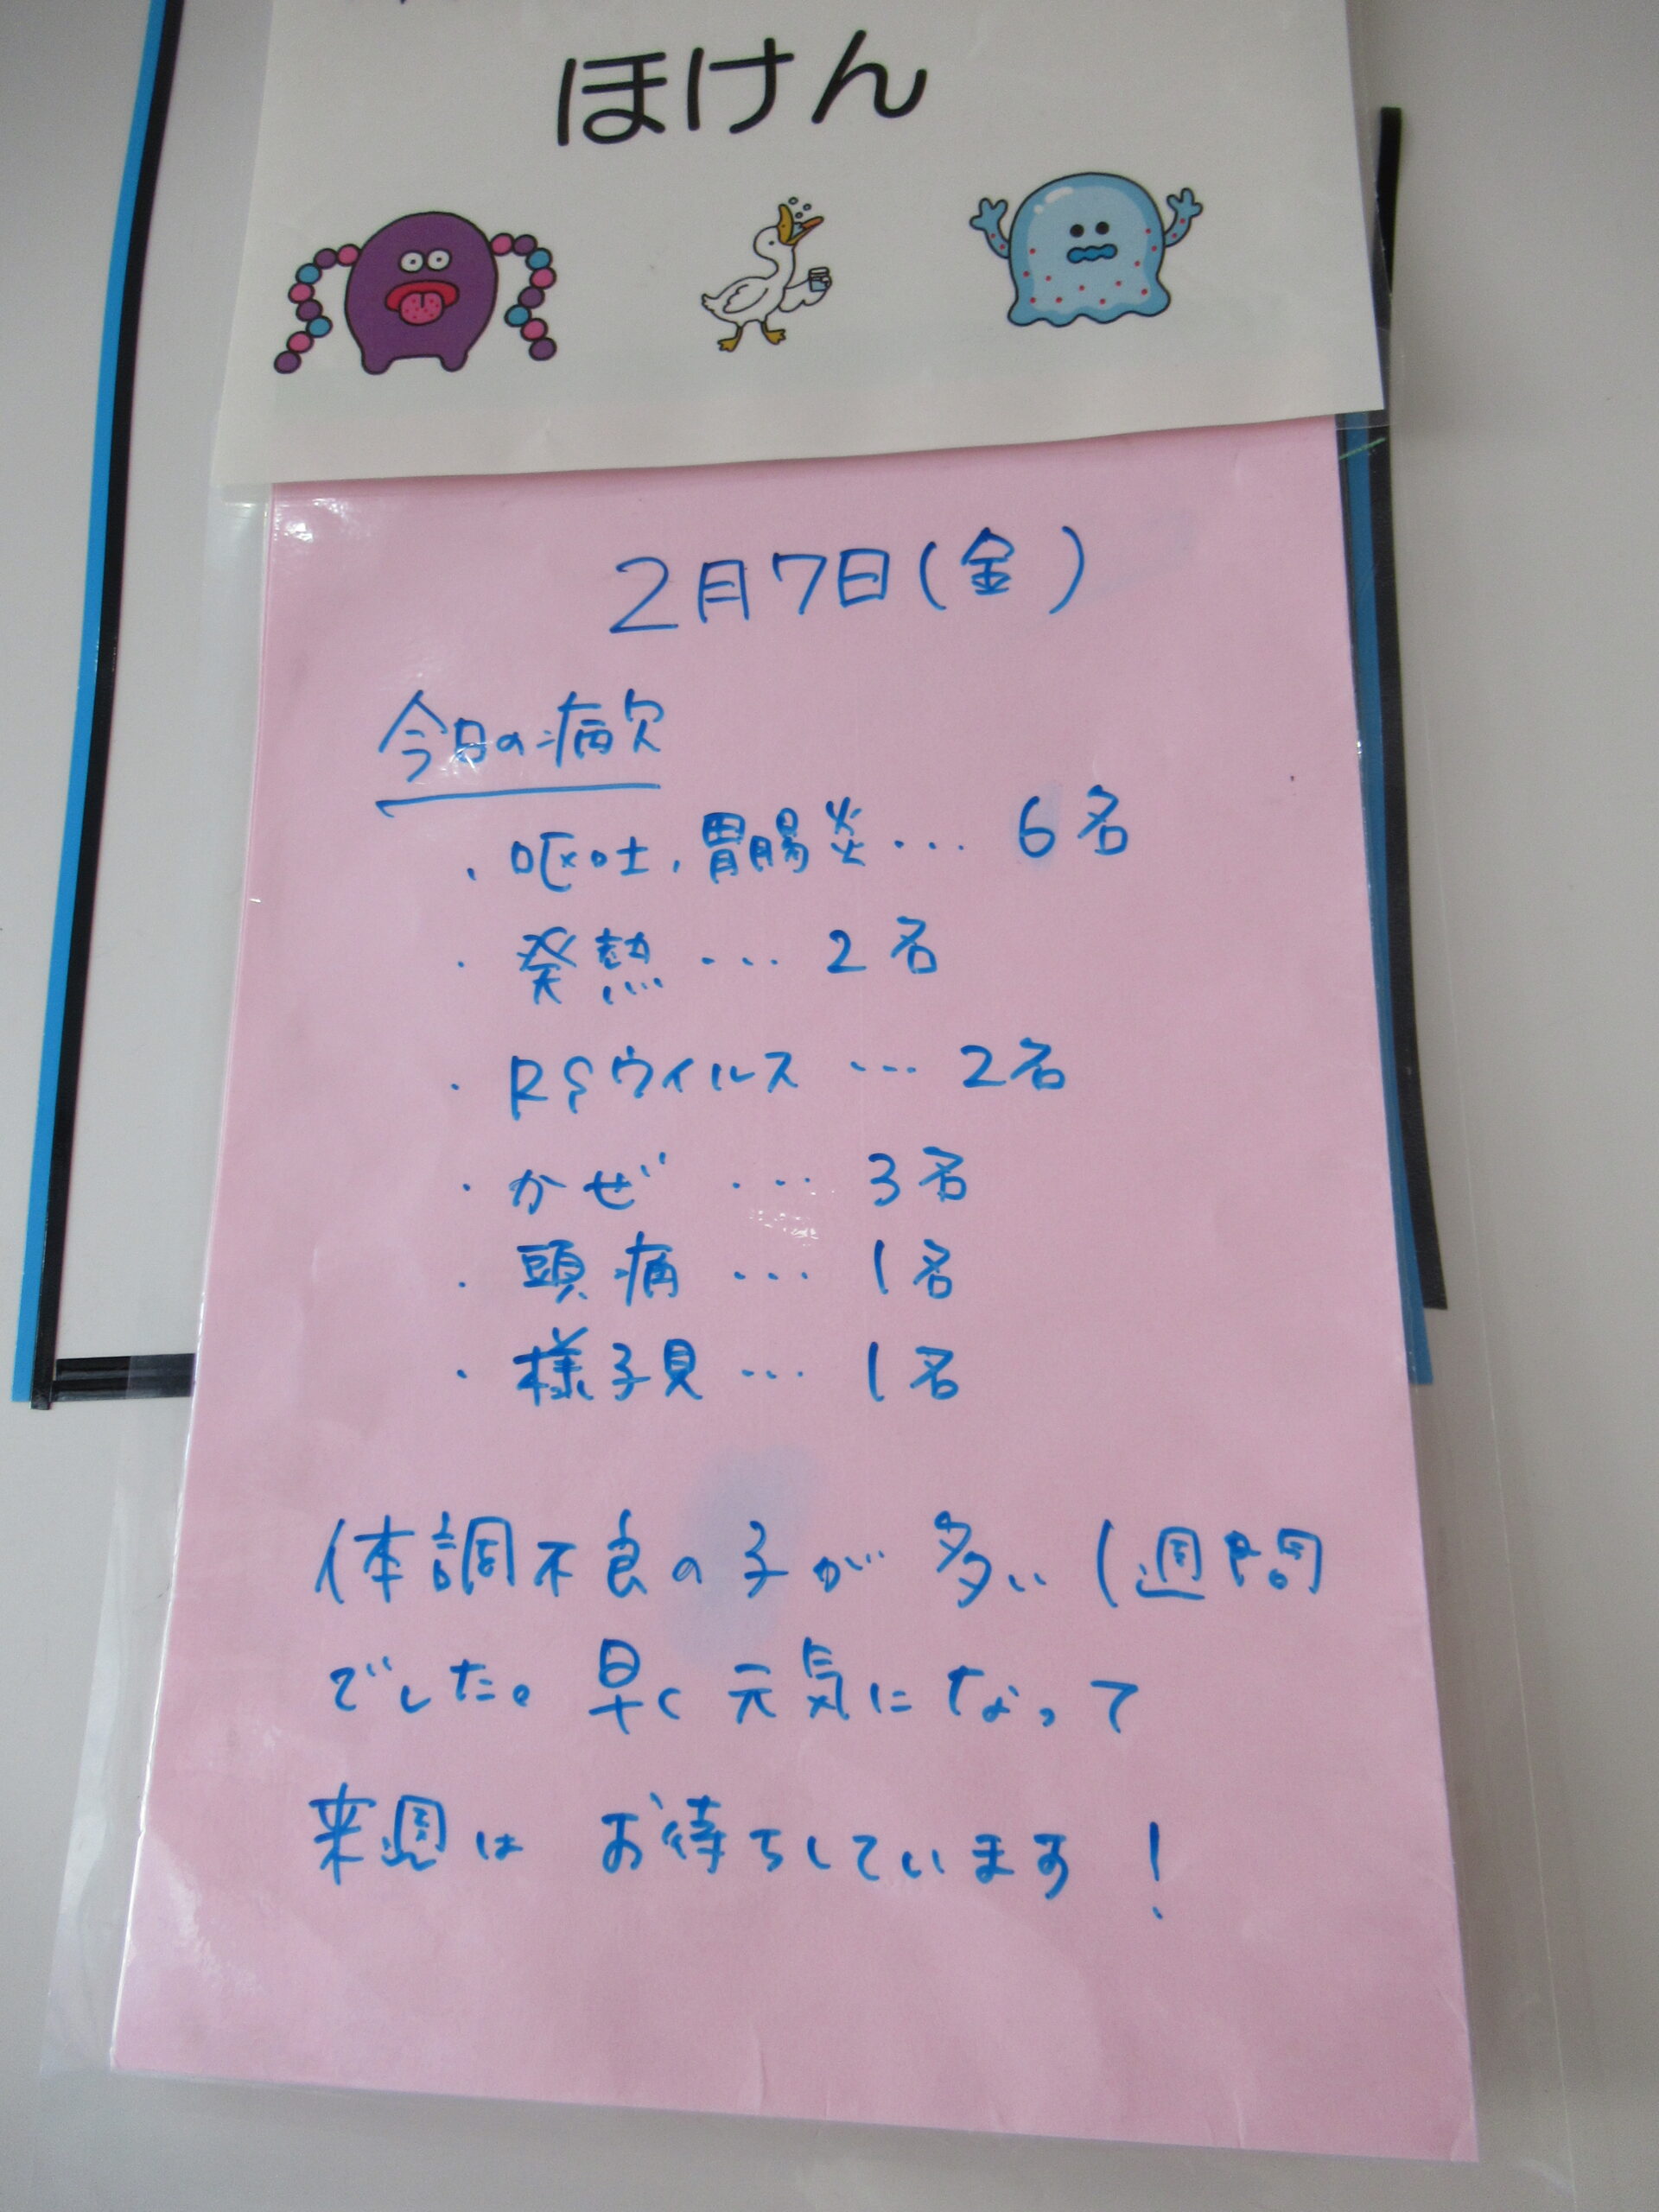 ほけん
2月7日(金)
今日の病欠
・嘔吐,胃腸炎... 6名
・発熱 ... 2名
・RSウイルス ... 2名
・かぜ ... 3名
・頭痛 ... 1名
・様子見 ... 1名
体調不良の子が多い1週間
でした。早く元気になって
来週はお待ちしています!